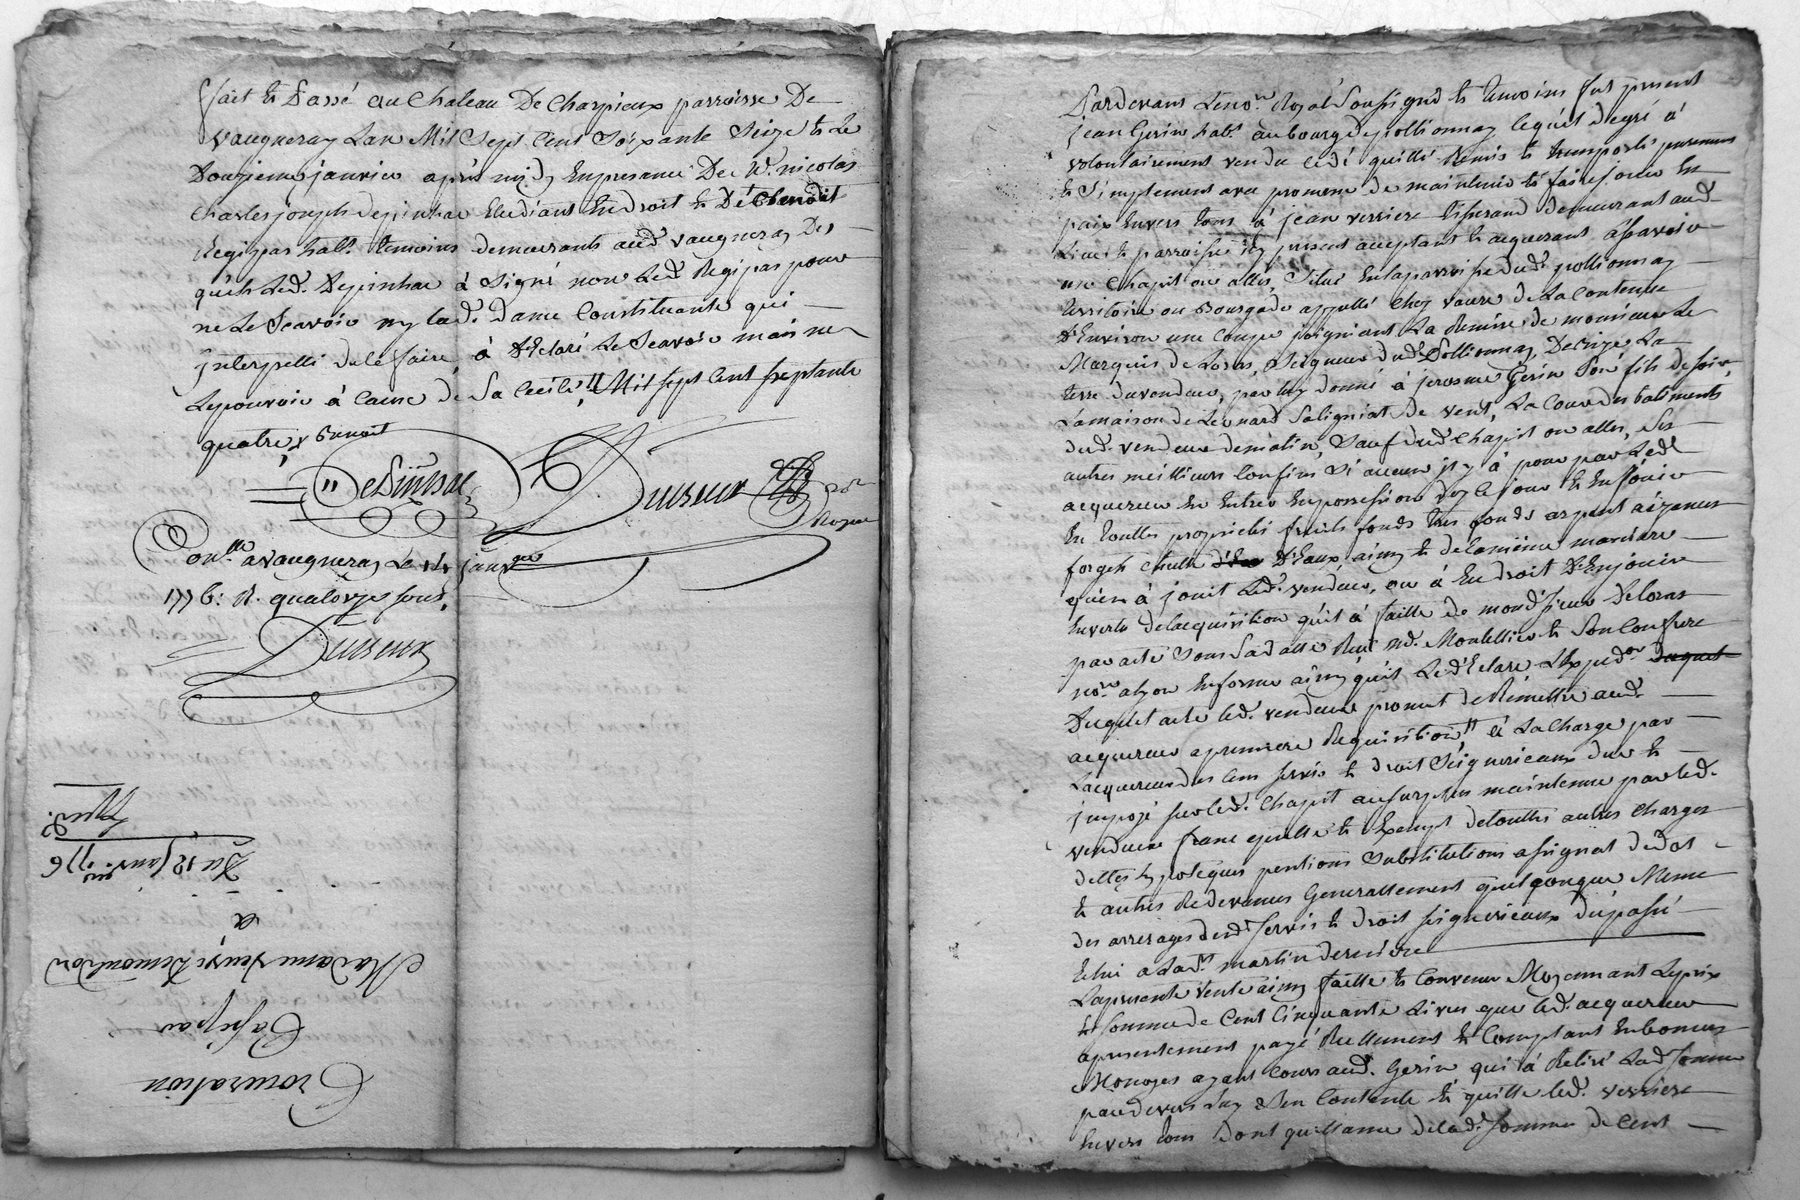 fait & Passé au Chateau De Charpieux parroisse De
vaugneray Lan Mil Sept Cent Soixante Seize & Le
Douzieme janvier après midy En presance De Mr. nicolas
Charles joseph depinhac Etudiant En droit & De Benoit
Regipas habt. temoins demeurants aud. vaugneray Des
quels Led. Depinhac à signé non Led. Regipas pour
ne Le Scavoir ny lad. dame Constituante qui
Interpellé de le faire à Déclaré Le Scavoir mais ne
Le pouvoir à Cause de Sa Cecité, Mil sept Cent septante
quatre x Benoit
Depinhac Duiseux
Royal
Con.lle a vaugneray Le 14 janvier
1776: R. quatorze sous.
Duiseux
Expéd.
Du 12 Janv. 1776
Madame veuve Demonbron
Passé par
Procuration
Pardevant Le no.re Royal Soussigné & temoins fut present
jean Gerin habt. au bourg de pollionnay lequel de gré à
volontairement vendu cedé quitté Remis & transporté purement
& Simplement avec promesse de maintenir & faire jouir En
paix Envers tous à jean verriere tisserand demeurant aud.
Lieu & parroisse icy present acceptant & acquerant asavoir
un Chapit ou allés, Situé En la parroisse dud. pollionnay
territoire ou Bourgade appellé Chez vaure de La Contenue
D'Environ une Coupe joignant La Remise de monsieur Le
Marquis de Loras, Seigneur dud. Pollionnay, De bize, La
terre du vendeur, par luy donné à jerosme Gerin Son fils de soir,
La maison de Léonard Saligniat De vent, La Cour des batiments
dud. vendeur de matin, Sauf dud. Chapit ou alles, Ses
autres meilleurs Confins Si aucun jl y à pour par Led.
acquereur En Entrer En possession dez ce jour & En jouir
En toutte proprieté fruits fonds tres fonds argent aizances
forgets chutte D'Eaux, ainsy & de la meme maniere
qu'en à jouit Led. vendeur, ou à Eu droit D'En jouir
En vertu de lacquisition qu'il à faitte de mond. sieur Deloras
par acte Sous Sa datte Reçu Md. Montellier & Son Confrere
no.re a lyon En forme ainsy qu'il Le déClare L'Expéd.on
Duquel acte led. vendeur promet de Rémettre aud.
acquereur a premiere Requisition à La Charge par
Lacquereur des Cens servis & droit Seigneuriaux dus &
jmposé sur led. Chapit au surplus maintenue par led.
vendeur franc quitte & Exempt de touttes autres Charges
dettes hypoteques pentions substitutions assignat de dot
& autres Redevances Generallement quelqonque Meme
des arrerages desd. servis & droit seigneuriaux du passé
Echu a La St. martin derniere
La presente vente ainsy faitte & Convenu Moyennant Le prix
& somme de Cent Cinquante Livres que led. acquereur
a presentement payé Reellement & Comptant En bonnes
Monoyes ayant Cours aud. Gerin qui l'à Rétiré Lad. somme
par devers luy s'en Contente & quitte led. verriere
Envers tous Dont quittance de lad. somme de Cent